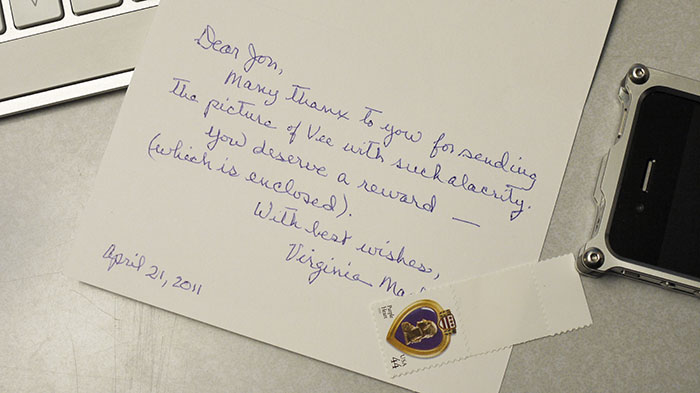 Dear Jon,
Many thanx to you for sending
the picture of Vee with such alacrity.
You deserve a reward —
(which is enclosed).
With best wishes,
Virginia
April 21, 2011
Purple Heart
USA 44